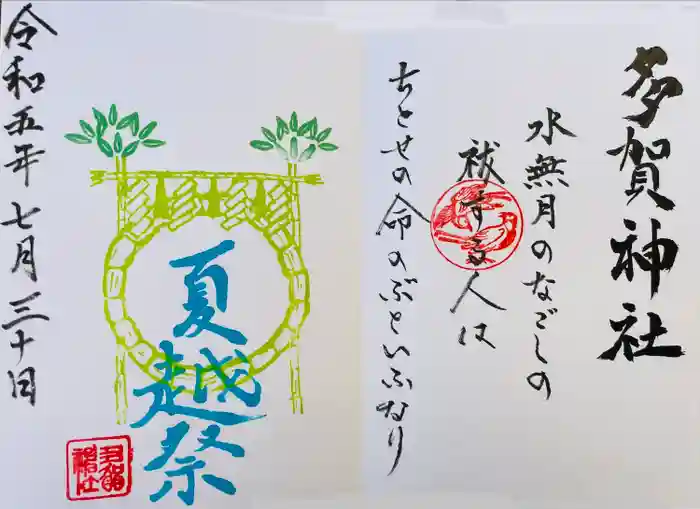 多賀神社
水無月のなごしの
祓する人は
ちとせの命のぶといふなり
夏越祭
令和五年七月三十日
多賀神社